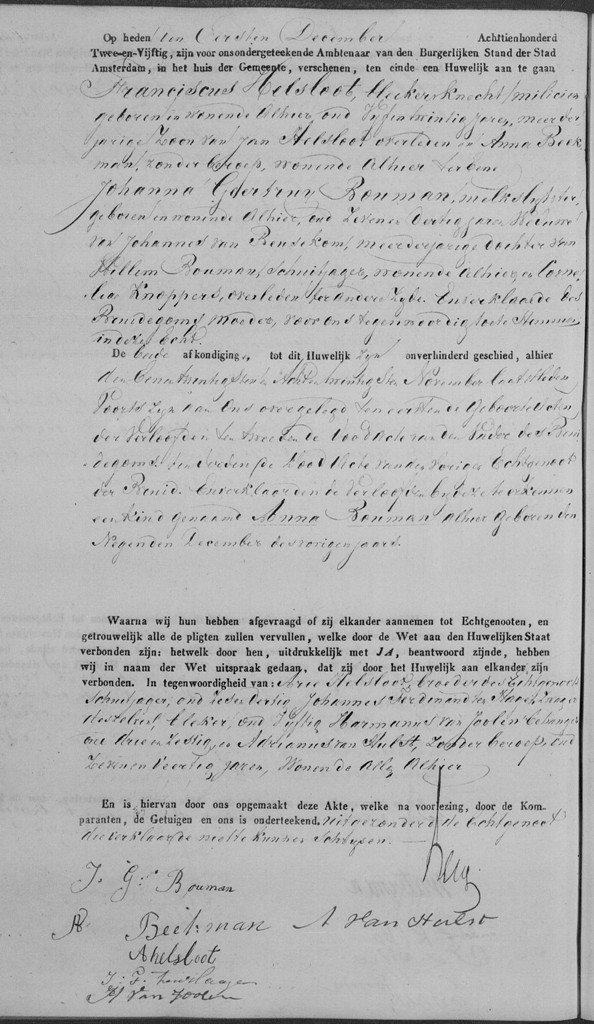 Op heden den Eersten December Achttienhonderd
Twee-en-Vijftig, zijn voor ons ondergeteekende Ambtenaar van den Burgerlijken Stand der Stad
Amsterdam, in het huis der Gemeente, verschenen, ten einde een Huwelijk aan te gaan
Franciscus Helsloot, Blekersknecht, milicien
geboren en wonende Alhier, oud Vijfentwintig Jaren, meerder
jarige Zoon van Jan Helsloot overleden en Anna Beek-
man, zonder beroep, wonende Alhier ter eene
Johanna Geertruy Bouman, melkslijtster,
geboren en wonende Alhier, oud Zeven en Dertig jaren Weduwe
van Johannes van Reusekom, meerderjarige dochter van
Willem Bouman, Schuitjager, wonende Alhier, en Corne-
lia Knoppers, overleden ter andere Zijde. En verklaarde des
Bruidegoms Moeder, voor ons tegenwoordig toete Stemmen
in deze Echt.
De beide afkondigingen, tot dit Huwelijk zijn onverhinderd geschied, alhier
den Eenentwintigsten en Acht en twintigsten November laatstleden
Voorts zijn aan Ons overgelegd ten eersten de Geboorteakten
der Verloofden ten tweeden de Dood Acte van den Vader des Brui-
degoms ten derden de Dood Acte van der vorigen Echtgenoot
der Bruid. En verklaarden de Verloofden bij deze te erkennen
een kind genaamd Anna Bouman Alhier geboren den
Negenden December des vorigen jaars.
Waarna wij hun hebben afgevraagd of zij elkander aannemen tot Echtgenooten, en
getrouwelijk alle de pligten zullen vervullen, welke door de Wet aan den Huwelijken Staat
verbonden zijn: hetwelk door hen, uitdrukkelijk met JA, beantwoord zijnde, hebben
wij in naam der Wet uitspraak gedaan, dat zij door het Huwelijk aan elkander zijn
verbonden. In tegenwoordigheid van: Arie Helsloot, broeder des Echtgenoots
Schuitjager, oud Zes en Dertig, Johannes Ferdinand ter Hage, Zwager
deszelven, Bleker, oud Vijftig, Harmanus van Joolen Behanger
oud drie en Zestig, en Adrianus van Hulst, Zonder beroep, oud
Zeven en Veertig Jaren, Wonende Allen Alhier
En is hiervan door ons opgemaakt deze Akte, welke na voorlezing, door de Kom-
paranten, de Getuigen en ons is onderteekend. uitgezonderd de Echtgenoot
die verklaarde niet te kunnen Schrijven.
J. G. Bouman
AB Beekman A van Hulst
AHelsloot
J: F. ter Hage
H van Joolen